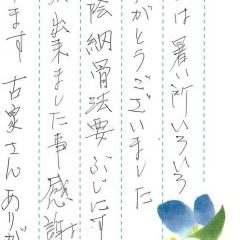 は暑い所いろいろ
がとうございました
陰納骨法要ぶじにす
出来ました事感謝
ます 古家さんありが